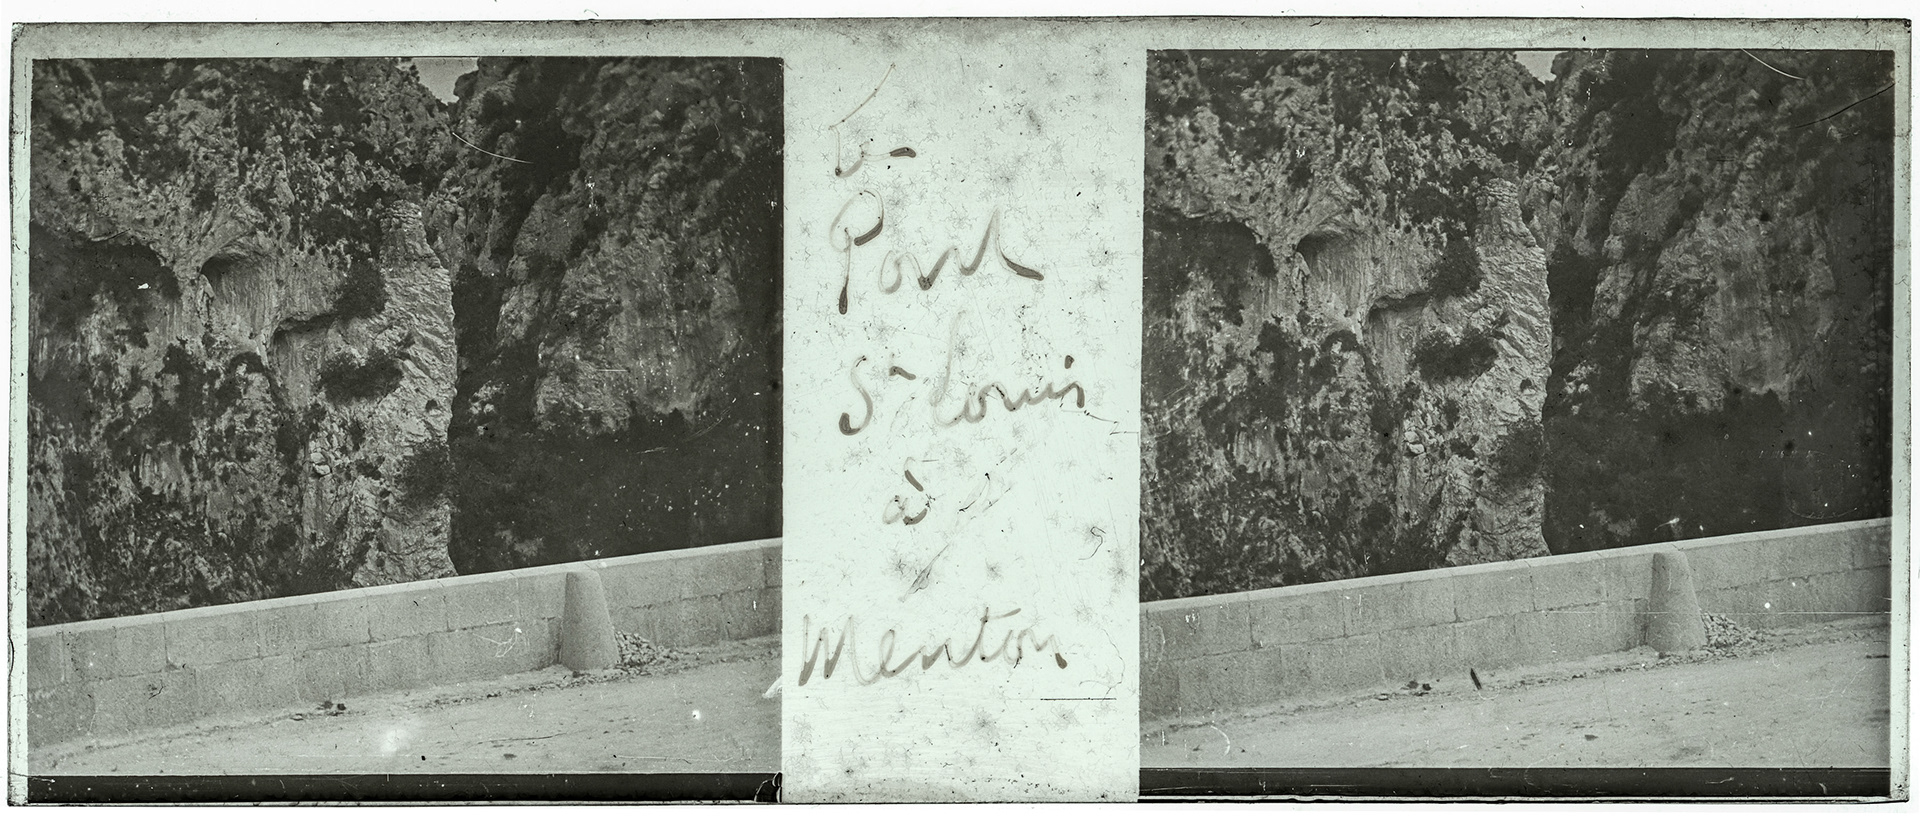 Le
Pont
St Louis
à
Menton